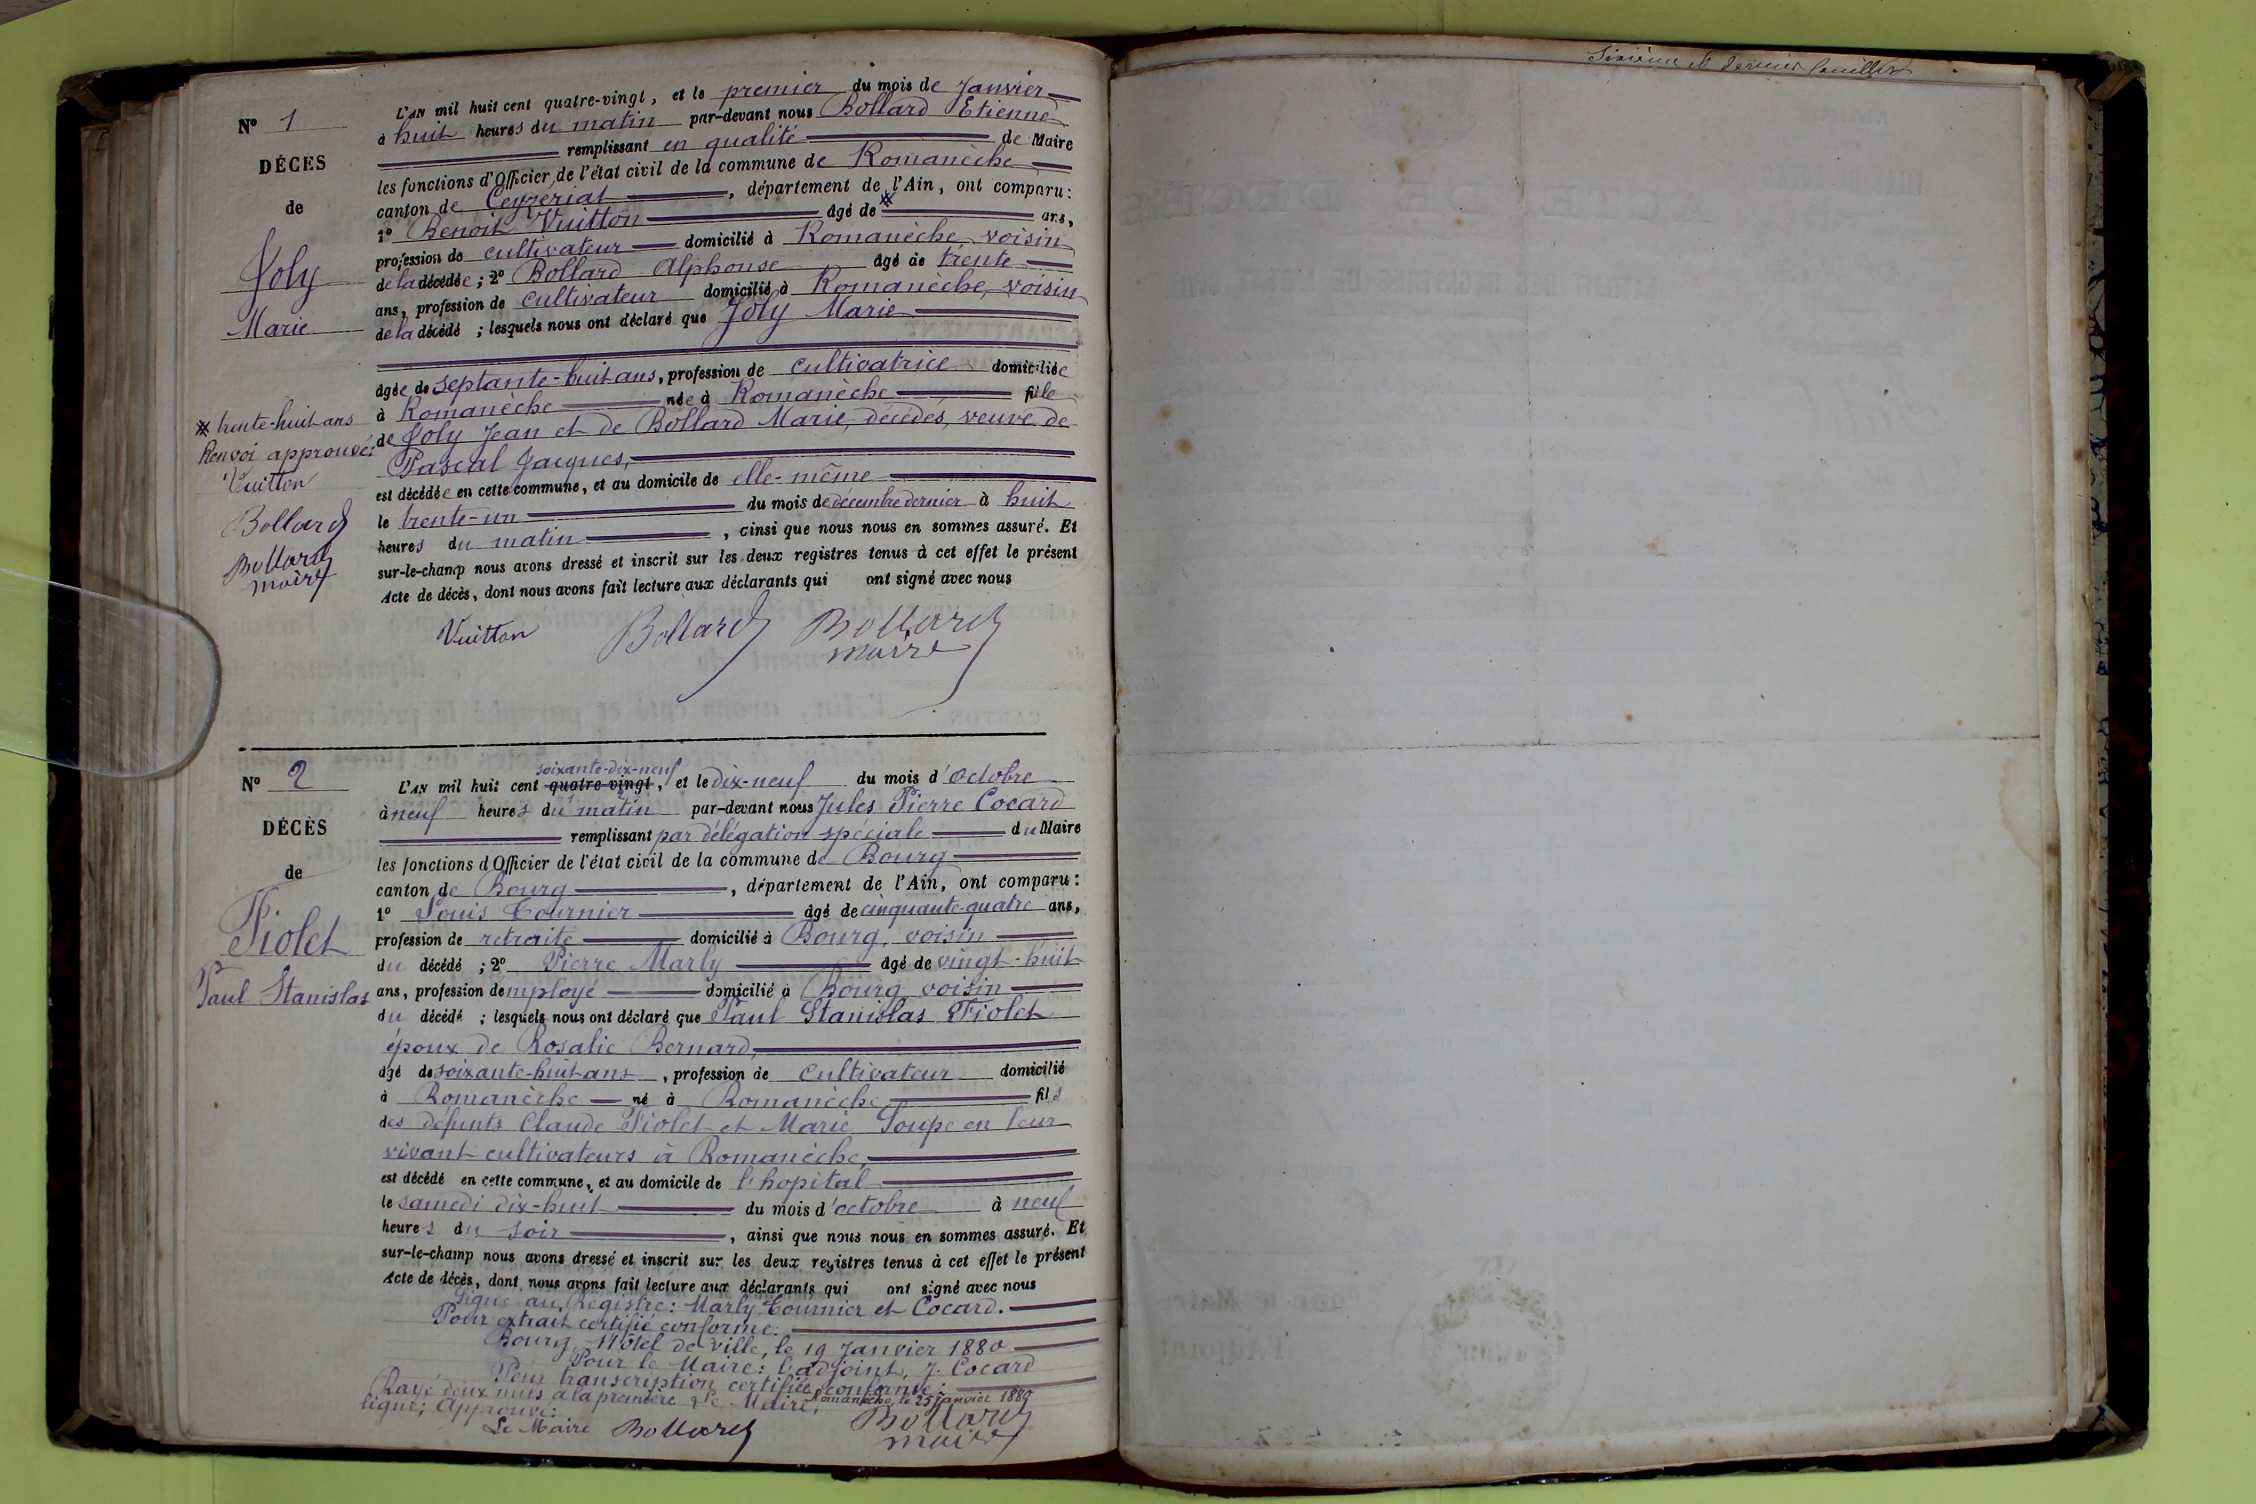 Nº 1
DÉCÈS
de
Joly
Marie
L'AN mil huit cent quatre-vingt, et le premier du mois de Janvier
à huit heures du matin par-devant nous Bollard Etienne
remplissant en qualité de Maire
les fonctions d'Officier de l'état civil de la commune de Romanèche
canton de Ceyzériat, département de l'Ain, ont comparu :
1º Benoit Vuitton âgé de ※ ans,
profession de cultivateur domicilié à Romanèche, voisin
de la décédée ; 2º Bollard Alphonse âgé de trente
ans, profession de cultivateur domicilié à Romanèche, voisin
de la décédé ; lesquels nous ont déclaré que Joly Marie
âgée de septante-huit ans, profession de cultivatrice domiciliée
à Romanèche née à Romanèche fille
de Joly Jean et de Bollard Marie, décédés, veuve de
Pascal Jacques,
est décédée en cette commune, et au domicile de elle-même
le trente-un du mois de décembre dernier à huit
heures du matin, ainsi que nous nous en sommes assuré. Et
sur-le-champ nous avons dressé et inscrit sur les deux registres tenus à cet effet le présent
Acte de décès, dont nous avons fait lecture aux déclarants qui ont signé avec nous
Vuitton Bollard Bollard
maire
※ trente-huit ans
Renvoi approuvé:
Vuitton
Bollard
Bollard
maire
Nº 2
DÉCÈS
de
Fiolet
Paul Stanislas
soixante-dix-neuf
L'AN mil huit cent quatre-vingt, et le dix-neuf du mois d'octobre
à neuf heures du matin par-devant nous Jules Pierre Cocard
remplissant par délégation spéciale du Maire
les fonctions d'Officier de l'état civil de la commune de Bourg
canton de Bourg, département de l'Ain, ont comparu :
1º Louis Tournier âgé de cinquante-quatre ans,
profession de retraité domicilié à Bourg, voisin
du décédé ; 2º Pierre Marly âgé de vingt-huit
ans, profession d'employé domicilié à Bourg voisin
du décédé ; lesquels nous ont déclaré que Paul Stanislas Fiolet
époux de Rosalie Bernard,
âgé de soixante-huit ans, profession de cultivateur domicilié
à Romanèche né à Romanèche fils
des défunts Claude Fiolet et Marie Soupe en leur
vivant cultivateurs à Romanèche,
est décédé en cette commune, et au domicile de l'hopital
le samedi dix-huit du mois d'octobre à neuf
heures du soir, ainsi que nous nous en sommes assuré. Et
sur-le-champ nous avons dressé et inscrit sur les deux registres tenus à cet effet le présent
Acte de décès, dont nous avons fait lecture aux déclarants qui ont signé avec nous
Signé au Registre : Marly, Tournier et Cocard.
Pour extrait certifié conforme :
Bourg, Hôtel de Ville, le 19 Janvier 1880
Pour le Maire : l'adjoint, J. Cocard
Pour transcription certifiée conforme :
Rayé deux mots à la première Le Maire, Romanèche, le 25 janvier 1880
ligne ; Approuvé :
Le Maire Bollard Bollard
maire
Sixième et dernier feuillet